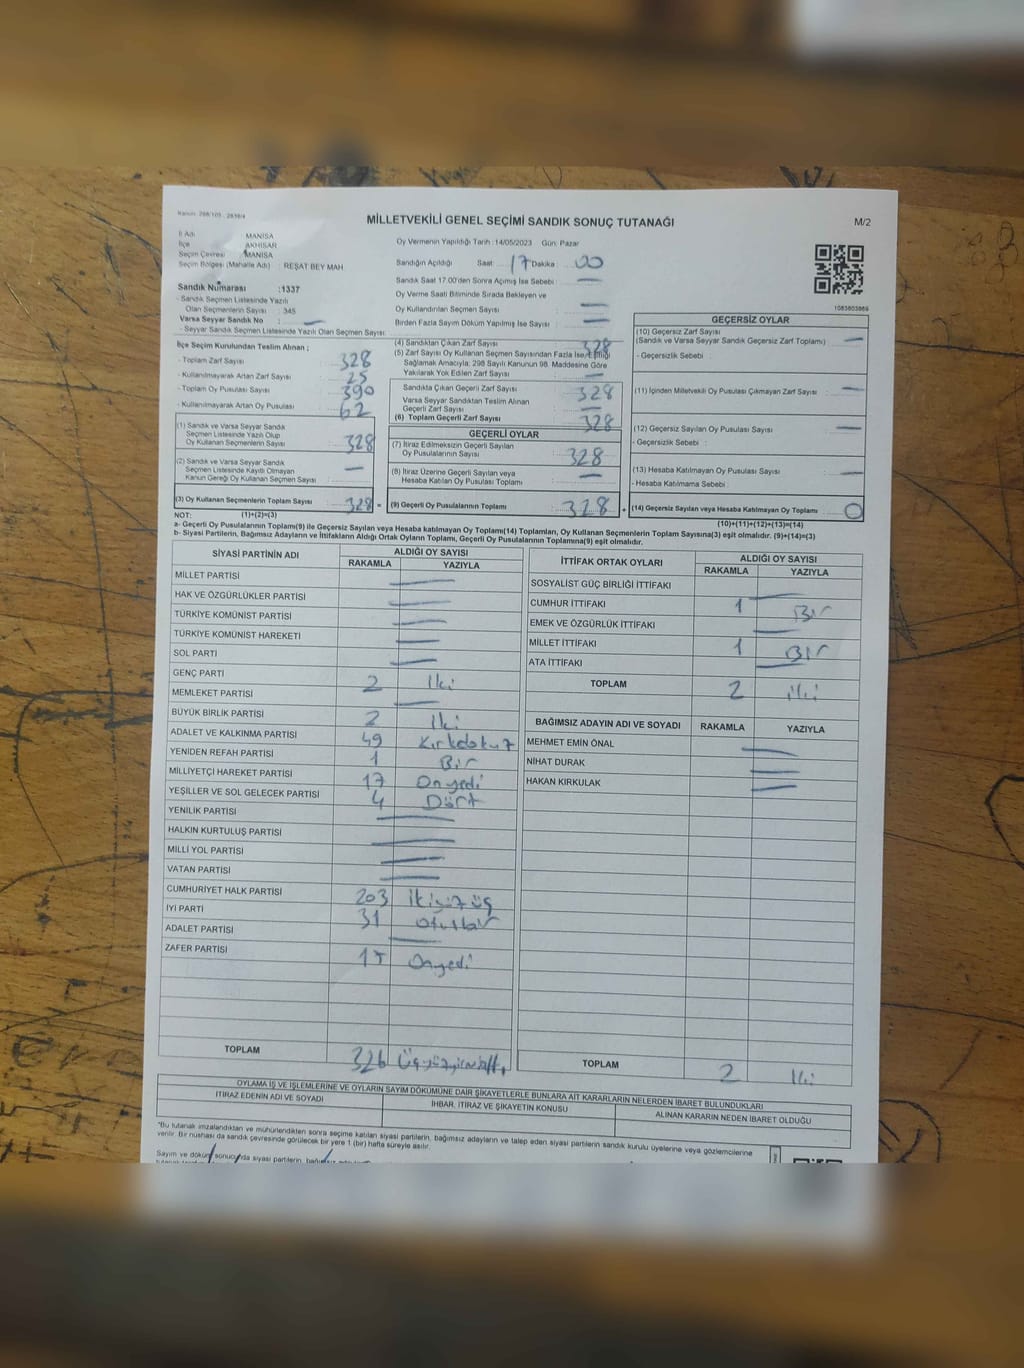 Kanun: 298/105 , 2839/4
MİLLETVEKİLİ GENEL SEÇİMİ SANDIK SONUÇ TUTANAĞI
M/2
İl Adı MANİSA
İlçe AKHİSAR
Seçim Çevresi MANİSA
Seçim Bölgesi (Mahalle Adı) : REŞAT BEY MAH
Sandık Numarası :1337
- Sandık Seçmen Listesinde Yazılı
Olan Seçmenlerin Sayısı : 345
Varsa Seyyar Sandık No —
- Seyyar Sandık Seçmen Listesinde Yazılı Olan Seçmen Sayısı:
Oy Vermenin Yapıldığı Tarih :14/05/2023 Gün: Pazar
Sandığın Açıldığı Saat: 17 Dakika: 00
Sandık Saat 17.00'den Sonra Açılmış İse Sebebi : —
Oy Verme Saati Bitiminde Sırada Bekleyen ve
Oy Kullandırılan Seçmen Sayısı : —
Birden Fazla Sayım Döküm Yapılmış İse Sayısı : —
1083803869
İlçe Seçim Kurulundan Teslim Alınan ;
- Toplam Zarf Sayısı : 328
- Kullanılmayarak Artan Zarf Sayısı : 25
- Toplam Oy Pusulası Sayısı : 390
- Kullanılmayarak Artan Oy Pusulası : 62
(1) Sandık ve Varsa Seyyar Sandık
Seçmen Listesinde Yazılı Olup
Oy Kullanan Seçmenlerin Sayısı : 328
(2) Sandık ve Varsa Seyyar Sandık
Seçmen Listesinde Kayıtlı Olmayan
Kanun Gereği Oy Kullanan Seçmen Sayısı : —
(3) Oy Kullanan Seçmenlerin Toplam Sayısı : 328 =
(4) Sandıktan Çıkan Zarf Sayısı : 328
(5) Zarf Sayısı Oy Kullanan Seçmen Sayısından Fazla İse, Eşitliği
Sağlamak Amacıyla; 298 Sayılı Kanunun 98. Maddesine Göre
Yakılarak Yok Edilen Zarf Sayısı : —
Sandıkta Çıkan Geçerli Zarf Sayısı : 328
Varsa Seyyar Sandıktan Teslim Alınan
Geçerli Zarf Sayısı : —
(6) Toplam Geçerli Zarf Sayısı : 328
GEÇERLİ OYLAR
(7) İtiraz Edilmeksizin Geçerli Sayılan
Oy Pusulalarının Sayısı : 328
(8) İtiraz Üzerine Geçerli Sayılan veya
Hesaba Katılan Oy Pusulası Toplamı : —
(9) Geçerli Oy Pusulalarının Toplamı : 328 +
GEÇERSİZ OYLAR
(10) Geçersiz Zarf Sayısı
(Sandık ve Varsa Seyyar Sandık Geçersiz Zarf Toplamı) : —
- Geçersizlik Sebebi :
(11) İçinden Milletvekili Oy Pusulası Çıkmayan Zarf Sayısı : —
(12) Geçersiz Sayılan Oy Pusulası Sayısı : —
- Geçersizlik Sebebi :
(13) Hesaba Katılmayan Oy Pusulası Sayısı : —
- Hesaba Katılmama Sebebi :
(14) Geçersiz Sayılan veya Hesaba Katılmayan Oy Toplamı : 0
NOT: (1)+(2)=(3)
(10)+(11)+(12)+(13)=(14)
a- Geçerli Oy Pusulalarının Toplamı(9) ile Geçersiz Sayılan veya Hesaba katılmayan Oy Toplamı(14) Toplamları, Oy Kullanan Seçmenlerin Toplam Sayısına(3) eşit olmalıdır. (9)+(14)=(3)
b- Siyasi Partilerin, Bağımsız Adayların ve İttifakların Aldığı Oyların Toplamı, Geçerli Oy Pusulalarının Toplamına(9) eşit olmalıdır.
SİYASİ PARTİNİN ADI ALDIĞI OY SAYISI
RAKAMLA YAZIYLA
MİLLET PARTİSİ —
HAK VE ÖZGÜRLÜKLER PARTİSİ —
TÜRKİYE KOMÜNİST PARTİSİ —
TÜRKİYE KOMÜNİST HAREKETİ —
SOL PARTİ —
GENÇ PARTİ 2 İki
MEMLEKET PARTİSİ —
BÜYÜK BİRLİK PARTİSİ 2 İki
ADALET VE KALKINMA PARTİSİ 49 Kırkdokuz
YENİDEN REFAH PARTİSİ 1 Bir
MİLLİYETÇİ HAREKET PARTİSİ 17 Onyedi
YEŞİLLER VE SOL GELECEK PARTİSİ 4 Dört
YENİLİK PARTİSİ —
HALKIN KURTULUŞ PARTİSİ —
MİLLİ YOL PARTİSİ —
VATAN PARTİSİ —
CUMHURİYET HALK PARTİSİ 203 İkiyüzüç
İYİ PARTİ 31 Otuzbir
ADALET PARTİSİ —
ZAFER PARTİSİ 17 Onyedi
TOPLAM 326 Üçyüzyirmialtı
İTTİFAK ORTAK OYLARI ALDIĞI OY SAYISI
RAKAMLA YAZIYLA
SOSYALİST GÜÇ BİRLİĞİ İTTİFAKI —
CUMHUR İTTİFAKI 1 Bir
EMEK VE ÖZGÜRLÜK İTTİFAKI —
MİLLET İTTİFAKI 1 Bir
ATA İTTİFAKI —
TOPLAM 2 iki
BAĞIMSIZ ADAYIN ADI VE SOYADI RAKAMLA YAZIYLA
MEHMET EMİN ÖNAL —
NİHAT DURAK —
HAKAN KIRKULAK —
TOPLAM 2 İki
OYLAMA İŞ VE İŞLEMLERİNE VE OYLARIN SAYIM DÖKÜMÜNE DAİR ŞİKAYETLERLE BUNLARA AİT KARARLARIN NELERDEN İBARET BULUNDUKLARI
İTİRAZ EDENİN ADI VE SOYADI
İHBAR, İTİRAZ VE ŞİKAYETİN KONUSU
ALINAN KARARIN NEDEN İBARET OLDUĞU
*Bu tutanak imzalandıktan ve mühürlendikten sonra seçime katılan siyasi partilerin, bağımsız adayların ve talep eden siyasi partilerin sandık kurulu üyelerine veya gözlemcilerine
verilir. Bir nüshası da sandık çevresinde görülecek bir yere 1 (bir) hafta süreyle asılır.
Sayım ve döküm sonucunda siyasi partilerin,